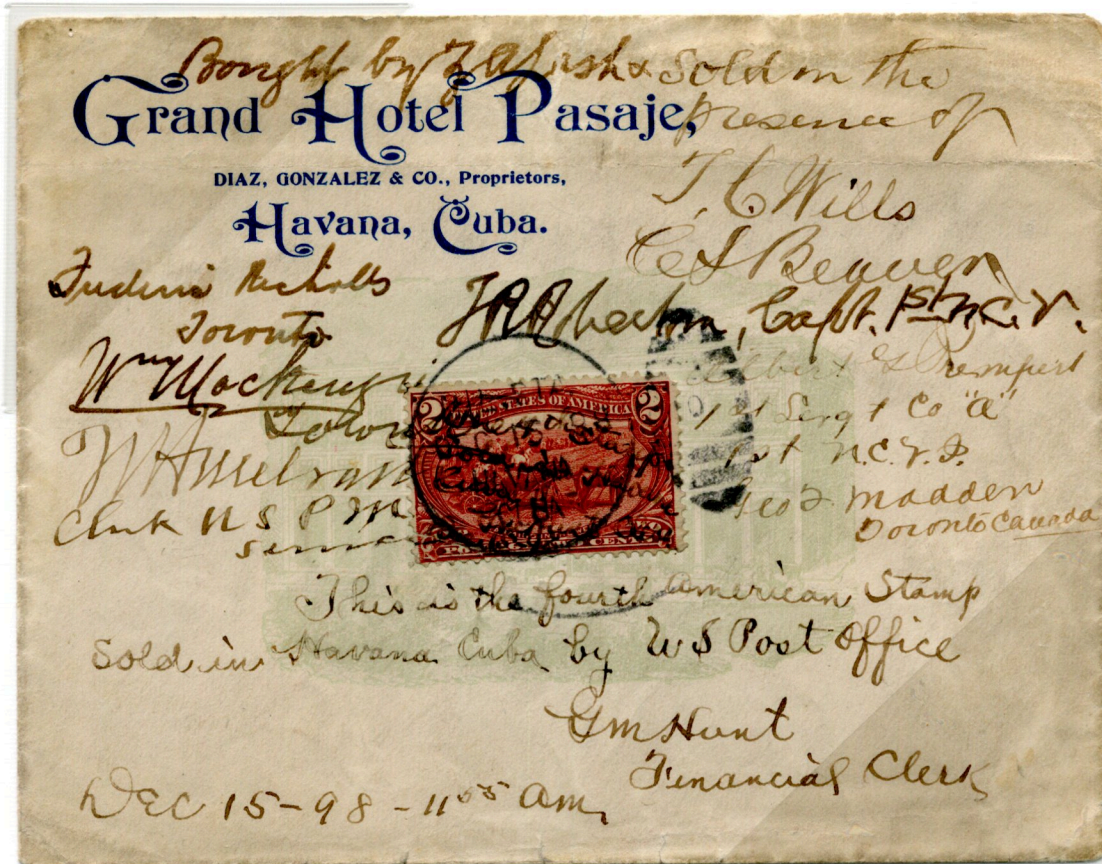 Bought by & Sold in the
presence of
Grand Hotel Pasaje,
DIAZ, GONZALEZ & CO., Proprietors,
Havana, Cuba.
T. C. Wills
C S Beaven
Frederic Nicholls
Toronto
Capt. 1st N.C.V.
Wm Mackenzie
Toronto
Albert G Trempert
1st Sergt Co "A"
1st N.C.V.I.
Clerk U S P M
Service
Geo F Madden
Toronto Canada
2 UNITED STATES OF AMERICA 2
This is the fourth American Stamp
Sold in Havana Cuba by U S Post Office
G M Hunt
Financial Clerk
DEC 15-98-11 55 am